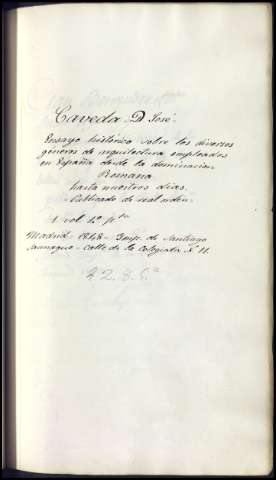 Caveda D. José.
Ensayo histórico sobre los diversos
géneros de arquitectura empleados
en España desde la dominacion
Romana
hasta nuestros días.
Publicado de real orden.
1 vol.
Madrid - 1848 - Imp. de Santiago
Saunaque - Calle de la Colegiata Nº 11.